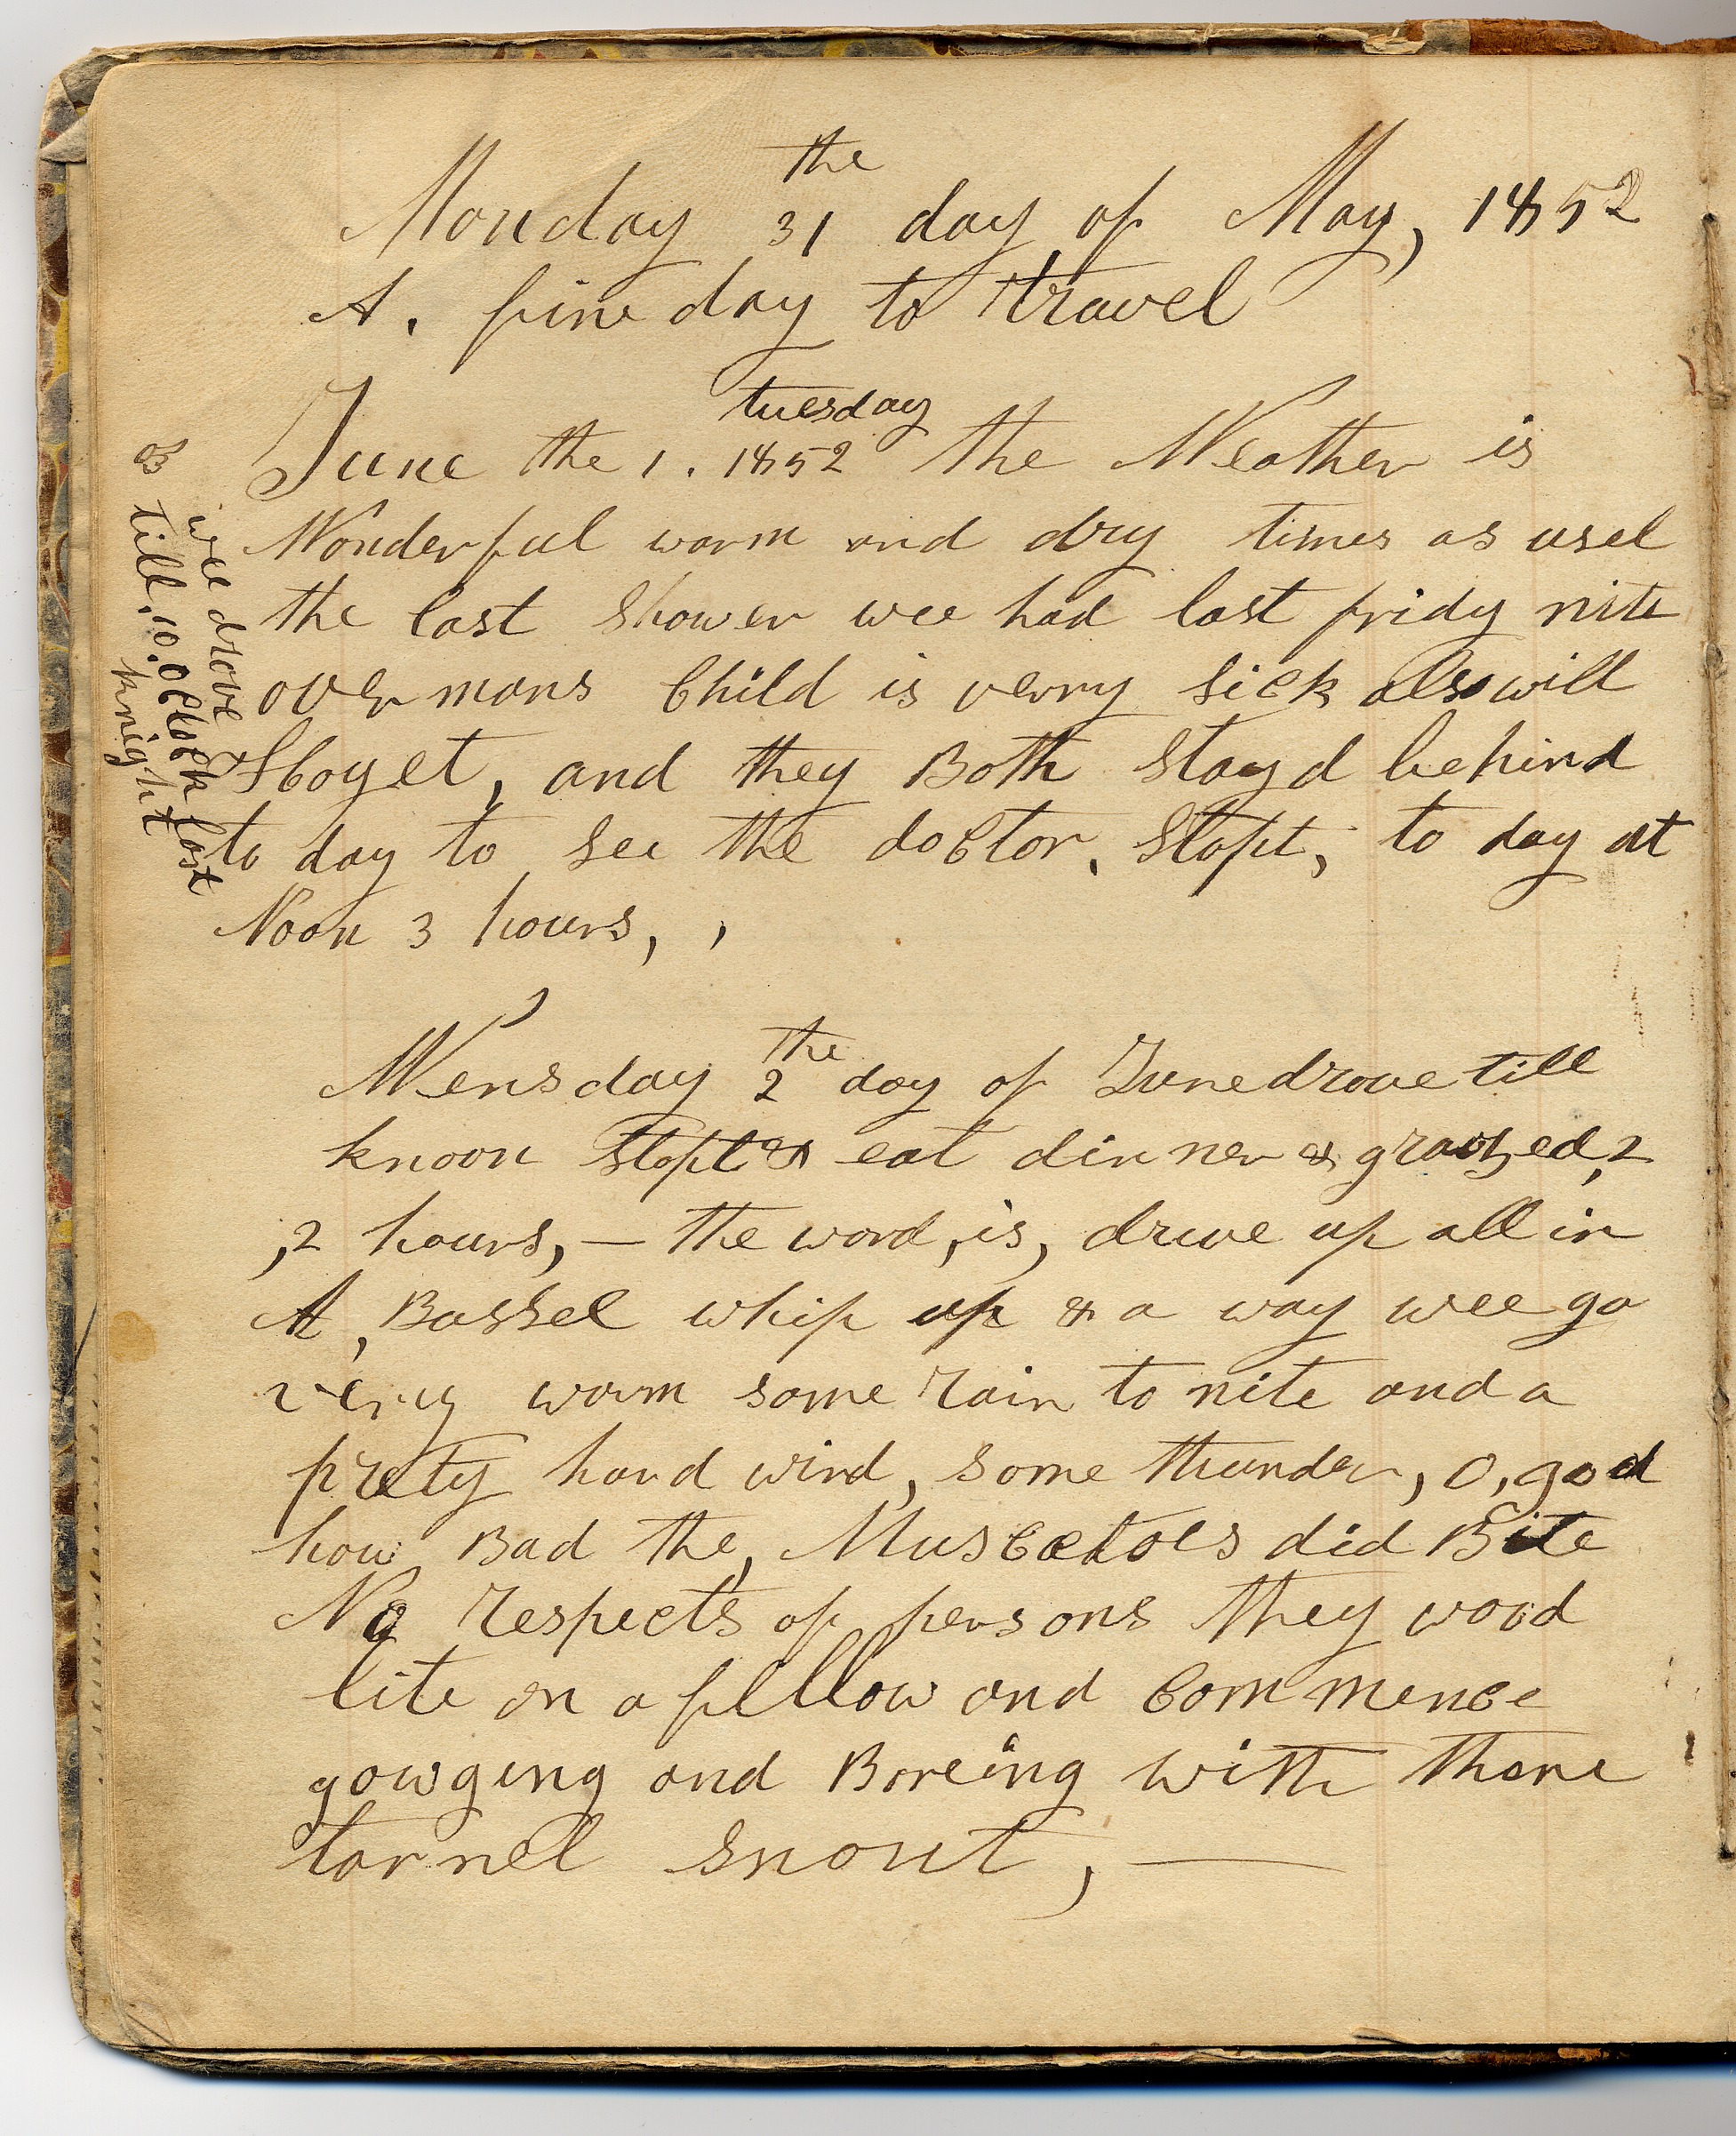 the
Monday 31 day of May, 1852
A. fine day to travel
tuesday
June the 1. 1852 the Weather is
Wonderful warm and dry times as usel
the last Shower wee had last fridy nite
over mans Child is verry Sick also will
and they Both Stayd behind
to day to See the doctor. Stopt, to day at
Noon 3 hours, ,
B
wee drove
till. 10. OClock last
knight
the
Wensday 2 day of June drove till
knoon Stopt & eat dinner & grazed, 2
,2 hours, — the word, is, drive up all in
A, Bassel whip up & a way wee go
very warm some rain to nite and a
prety hard wind, some thunder, O, god
how Bad the, Muscetoes did Bite
No respects of persons they wood
lite on a fellow and Commence
gowging and Boreing with there
tarnel snout, —